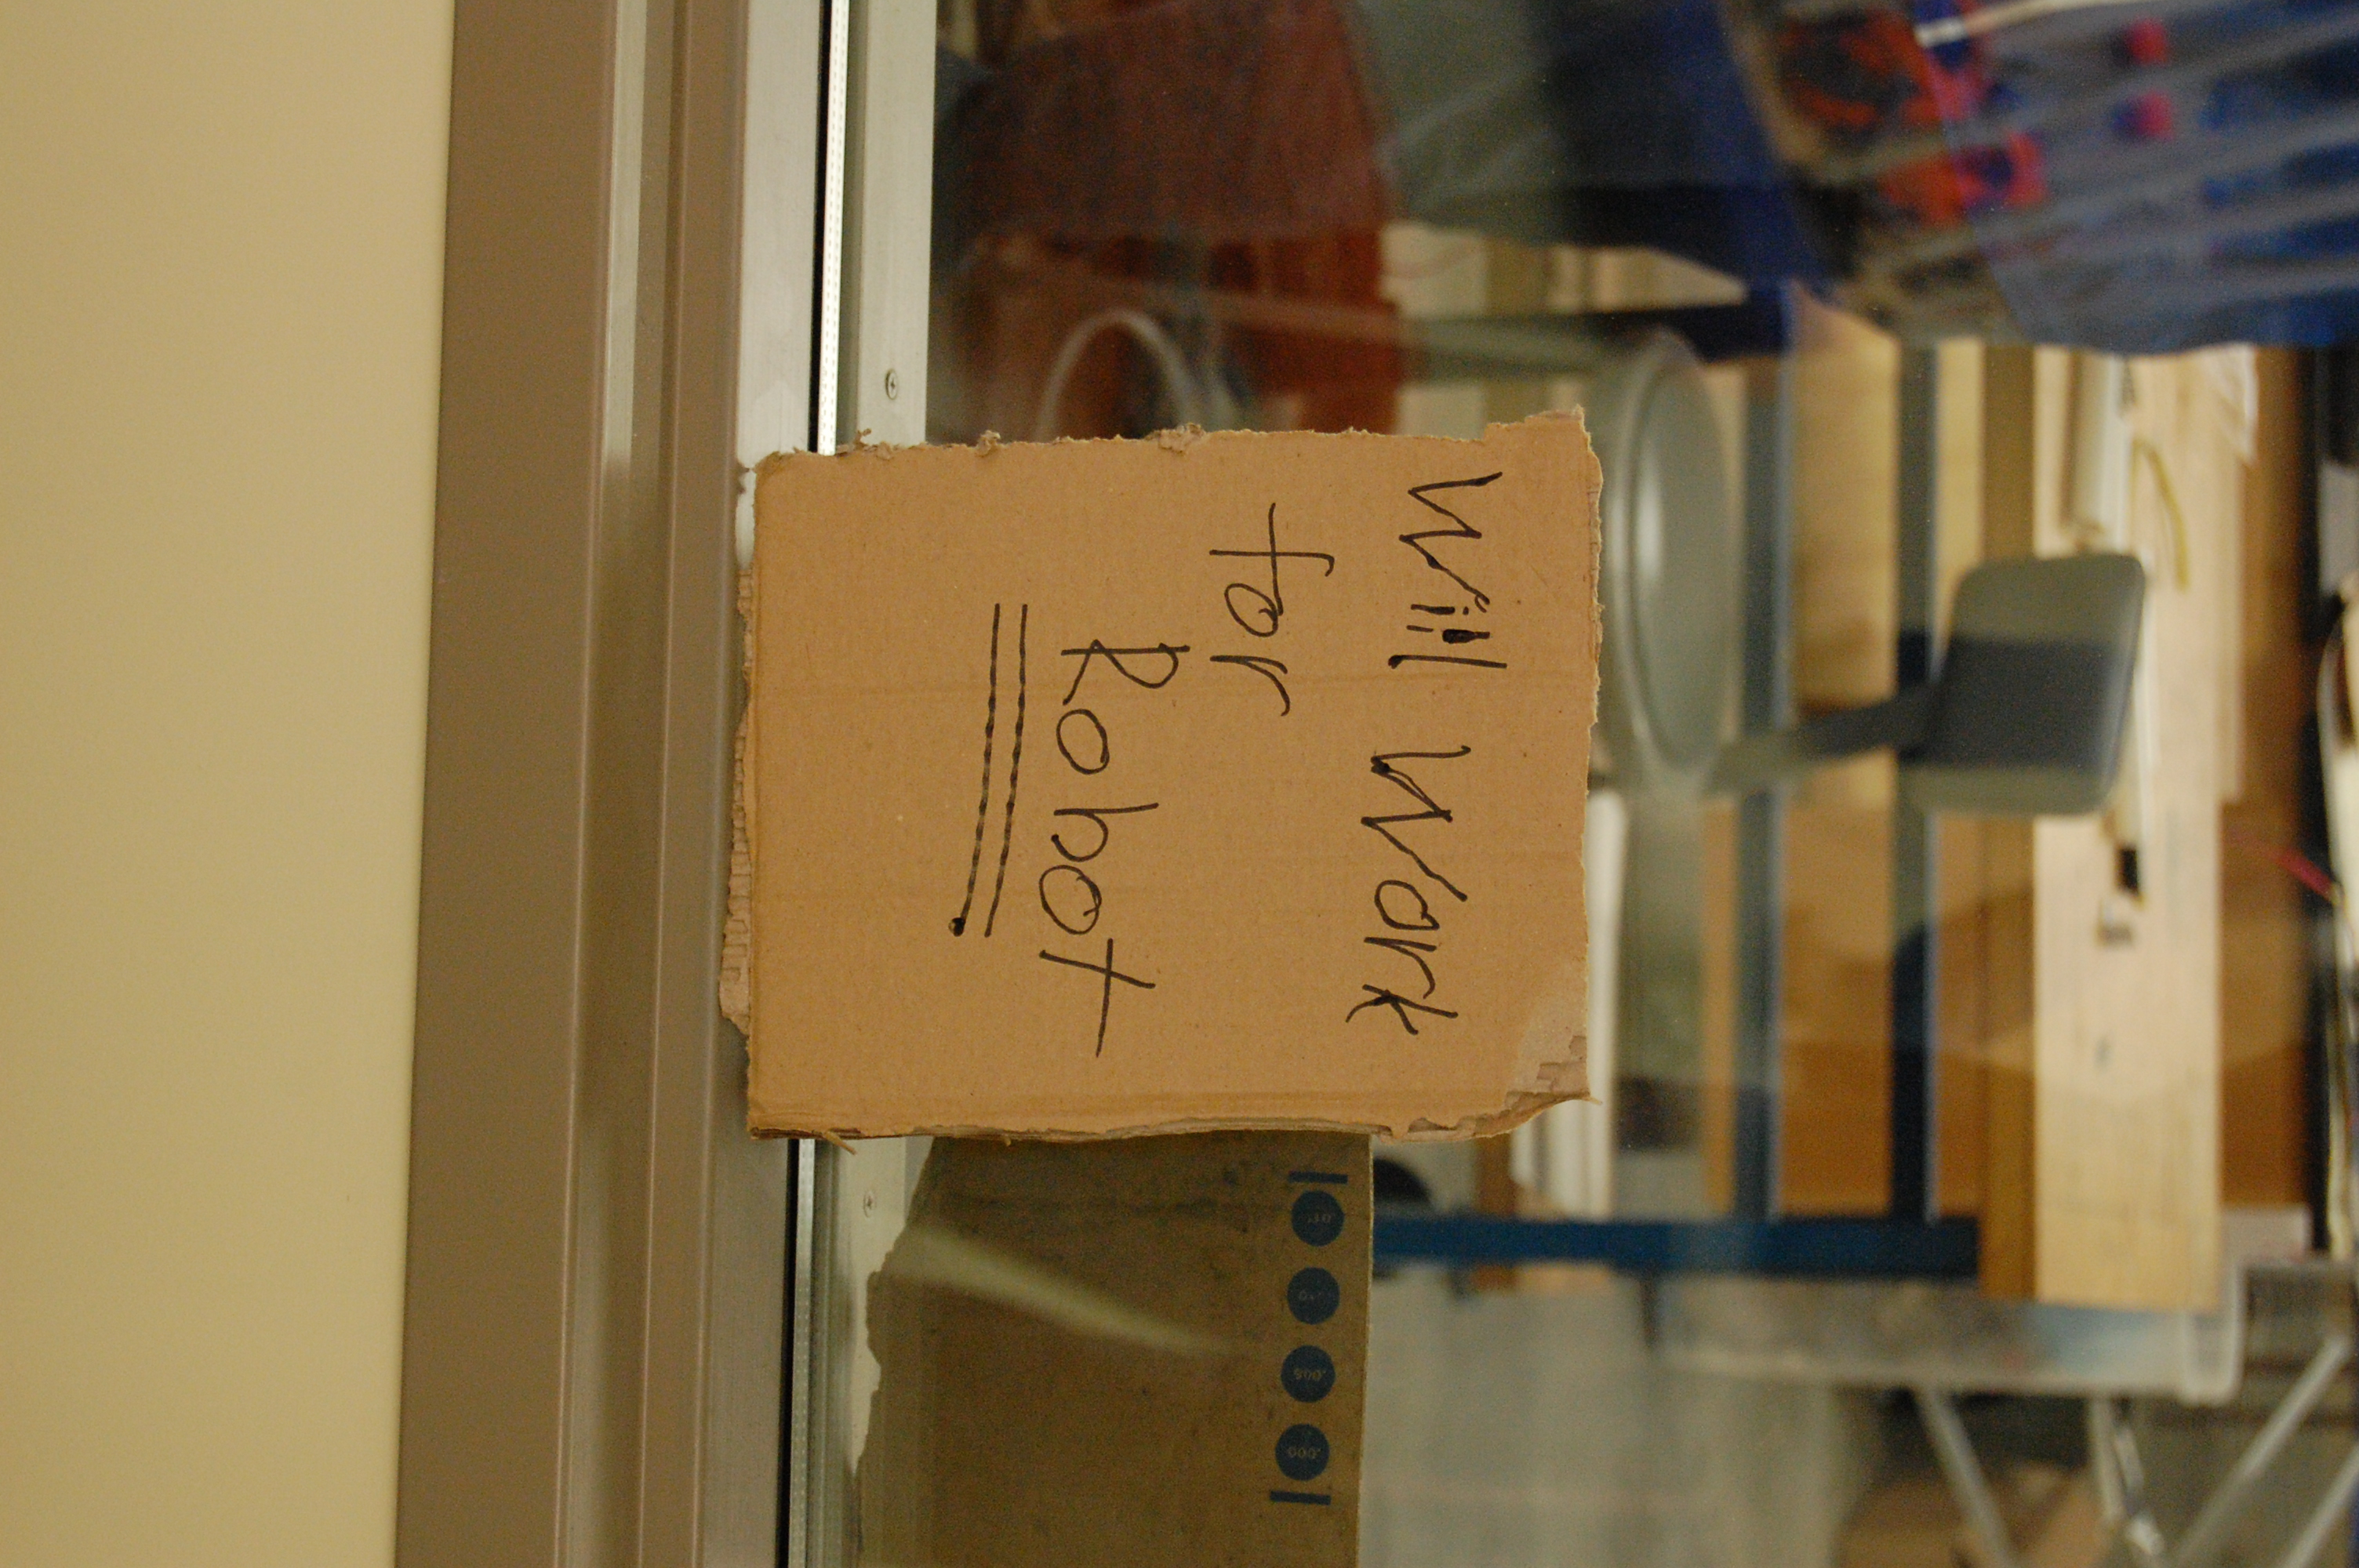 Will Work
for
Robot